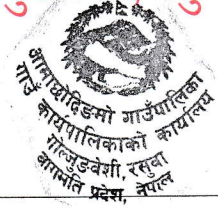 आमाछोदिङमो गाउँपालिका
गाउँ कार्यपालिकाको कार्यालय
गोल्जुङवेशी, रसुवा
बागमति प्रदेश, नेपाल